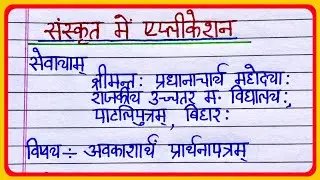 संस्कृत में एप्लीकेशन
सेवायाम्
श्रीमन्तः प्रधानाचार्य महोदयाः
राजकीय उच्चतर म. विद्यालयः,
पाटलिपुत्रम्, बिहारः
विषय ÷ अवकाशार्थ प्रार्थनापत्रम्